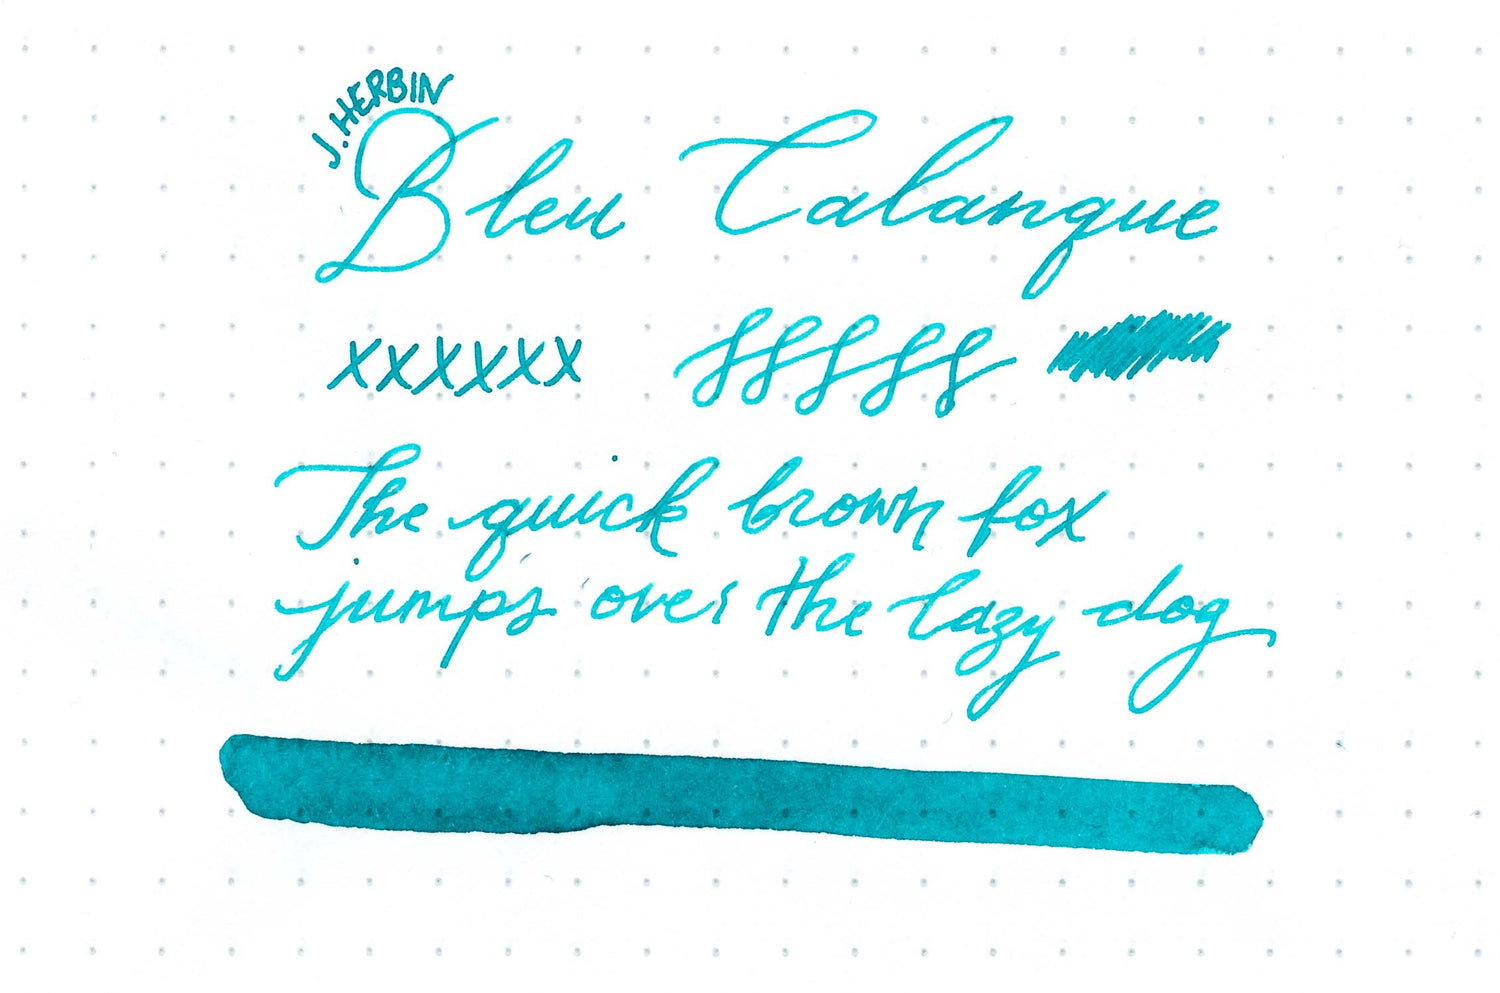 J. HERBIN
Bleu Calanque
xxxxxx
The quick brown fox
jumps over the lazy dog